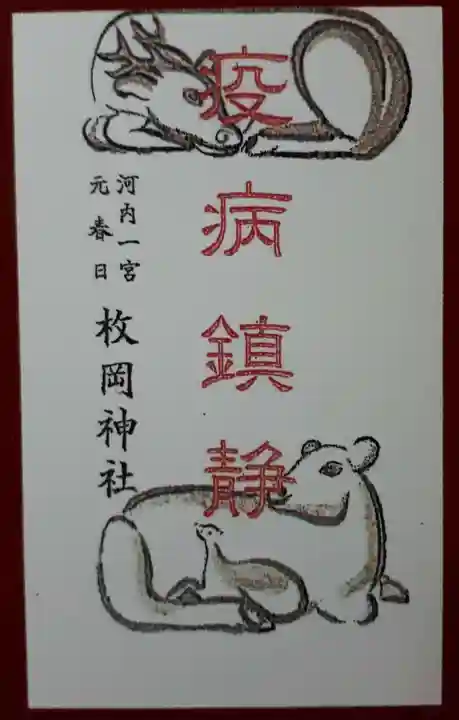 疫病鎮静
河内一宮
元春日
枚岡神社